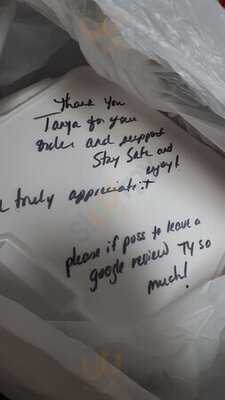 Thank You
Tanya for your
order and support
Stay Safe and
enjoy!
truly appreciate it
please if poss to leave a
google review TY so
much!